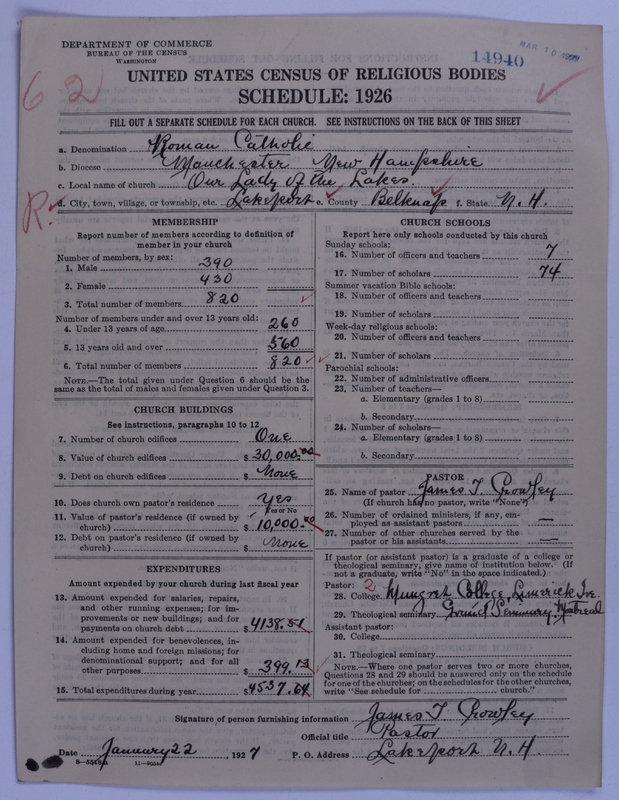 DEPARTMENT OF COMMERCE
BUREAU OF THE CENSUS
WASHINGTON
14940
MAR 10 1927
62
UNITED STATES CENSUS OF RELIGIOUS BODIES
SCHEDULE: 1926
FILL OUT A SEPARATE SCHEDULE FOR EACH CHURCH. SEE INSTRUCTIONS ON THE BACK OF THIS SHEET
a. Denomination Roman Catholic
b. Diocese Manchester New Hampshire
c. Local name of church Our Lady of the Lakes.
R.
d. City, town, village, or township, etc. Lakeport e. County Belknap f. State N. H.
MEMBERSHIP
Report number of members according to definition of
member in your church
Number of members, by sex:
1. Male 390
2. Female 430
3. Total number of members 820
Number of members under and over 13 years old:
4. Under 13 years of age 260
5. 13 years old and over 560
6. Total number of members 820
NOTE.—The total given under Question 6 should be the
same as the total of males and females given under Question 3.
CHURCH BUILDINGS
See instructions, paragraphs 10 to 12
7. Number of church edifices One
8. Value of church edifices $ 30,000.00
9. Debt on church edifices $ None
10. Does church own pastor's residence Yes
Yes or No
11. Value of pastor's residence (if owned by
church) $ 10,000.00
12. Debt on pastor's residence (if owned by
church) $ None
EXPENDITURES
Amount expended by your church during last fiscal year
13. Amount expended for salaries, repairs,
and other running expenses; for im-
provements or new buildings; and for
payments on church debt $ 4138.51
14. Amount expended for benevolences, in-
cluding home and foreign missions; for
denominational support; and for all
other purposes $ 399.13
15. Total expenditures during year $ 4537.64
CHURCH SCHOOLS
Report here only schools conducted by this church
Sunday schools:
16. Number of officers and teachers 7
17. Number of scholars 74
Summer vacation Bible schools:
18. Number of officers and teachers
19. Number of scholars
Week-day religious schools:
20. Number of officers and teachers
21. Number of scholars
Parochial schools:
22. Number of administrative officers
23. Number of teachers—
a. Elementary (grades 1 to 8)
b. Secondary
24. Number of scholars—
a. Elementary (grades 1 to 8)
b. Secondary
PASTOR
25. Name of pastor James T. Crowley
(If church has no pastor, write "None")
26. Number of ordained ministers, if any, em-
ployed as assistant pastors —
27. Number of other churches served by the
pastor or his assistants —
If pastor (or assistant pastor) is a graduate of a college or
theological seminary, give name of institution below. (If
not a graduate, write "No" in the space indicated.)
Pastor: 2
28. College Mungret College, Limerick Ire.
29. Theological seminary Grand Seminary, Montreal
Assistant pastor:
30. College
31. Theological seminary
NOTE.—Where one pastor serves two or more churches,
Questions 28 and 29 should be answered only on the schedule
for one of the churches; on the schedules for the other churches,
write "See schedule for church."
Signature of person furnishing information James T Crowley
Official title Pastor
Date January 22, 1927 P. O. Address Lakeport N. H.
8—5518A 11—9054